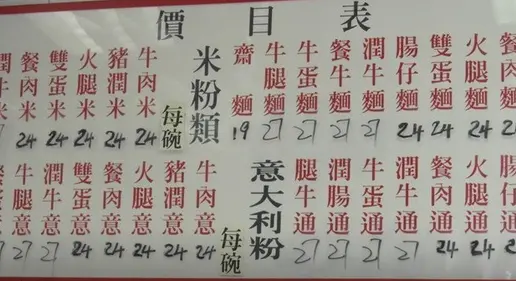 價目表
牛米
餐肉米 24
雙蛋米 24
火腿米 24
豬潤米 24
牛肉米 24
每碗
米粉類
齋麵 19
牛腿麵 27
牛蛋麵 27
餐牛麵 27
潤牛麵 27
腸仔麵 24
雙蛋麵 24
火腿麵 24
餐肉麵
意
牛腿意 27
潤牛意 27
雙蛋意 24
餐肉意 24
火腿意 24
豬潤意 24
牛肉意 24
每碗
意大利粉
腿牛通 27
潤腸通 27
牛蛋通 27
潤牛通 27
餐肉通 24
火腿通 24
腸仔通